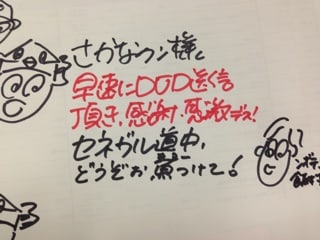 さかなクン様、
早速にDGD送信
頂き、感謝・感激デス!
セネガル道中、
どうぞお魚つけて!
ンボテ